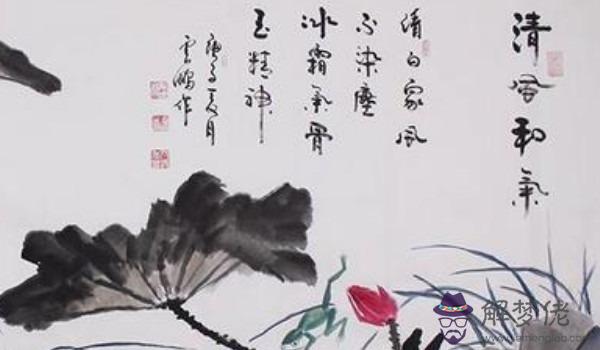 清風和氣
清白家風
不染塵
冰霜氣骨
玉精神
庚子夏月
雲鵬作
解梦佬